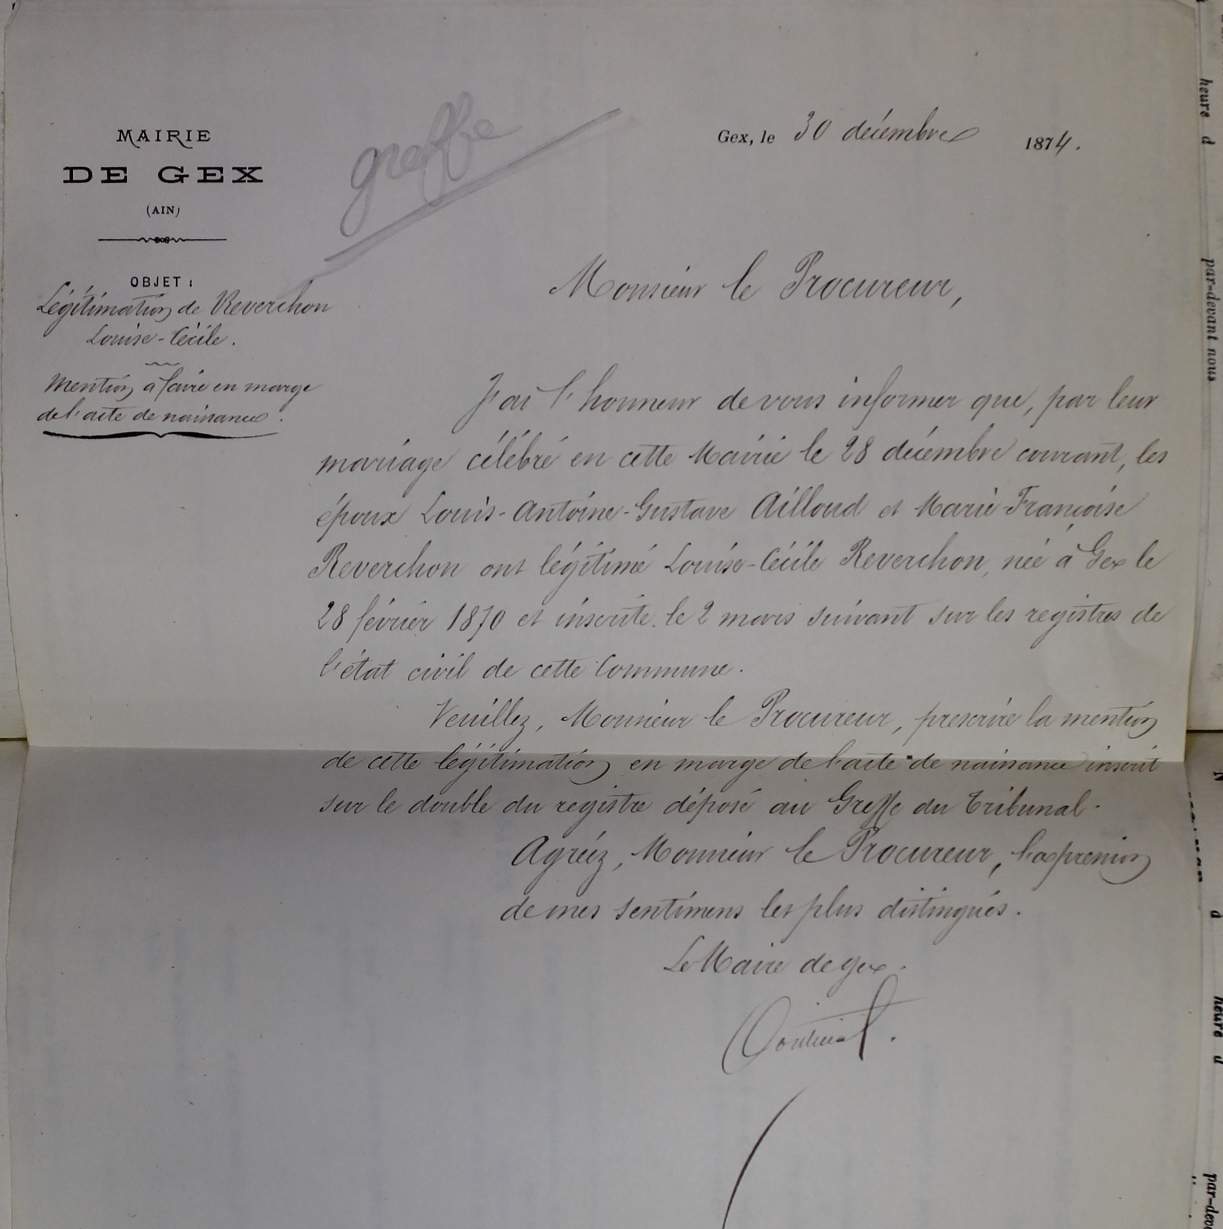 MAIRIE
DE GEX
(AIN)
greffe
Gex, le 30 décembre 1874.
OBJET :
Légitimation de Reverchon
Louise-Cécile.
Mention à faire en marge
de l'acte de naissance.
Monsieur le Procureur,
J'ai l'honneur de vous informer que, par leur
mariage célébré en cette Mairie le 28 décembre courant, les
époux Louis-Antoine-Gustave Ailloud et Marie Françoise
Reverchon ont légitimé Louise-Cécile Reverchon, née à Gex le
28 février 1870 et inscrite le 2 mars suivant sur les registres de
l'état civil de cette Commune.
Veuillez, Monsieur le Procureur, prescrire la mention
de cette légitimation en marge de l'acte de naissance inscrit
sur le double du registre déposé au Greffe du Tribunal.
Agréez, Monsieur le Procureur, l'expression
de mes sentimens les plus distingués.
Le Maire de Gex.
heure d
par-devant nous
d
heure d